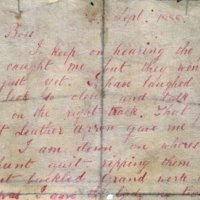 Sept. 1888.
Boss
I keep on hearing the
caught me but they won
just yet. I have laughed
look so clever and talk
on the right track. That
t Leather Apron gave me
I am down on whores
shant quit ripping them
t buckled. Grand work
was I gave the lady no